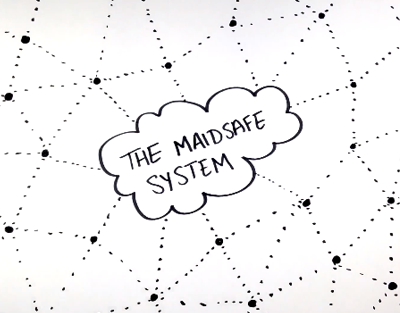 THE MAIDSAFE
SYSTEM